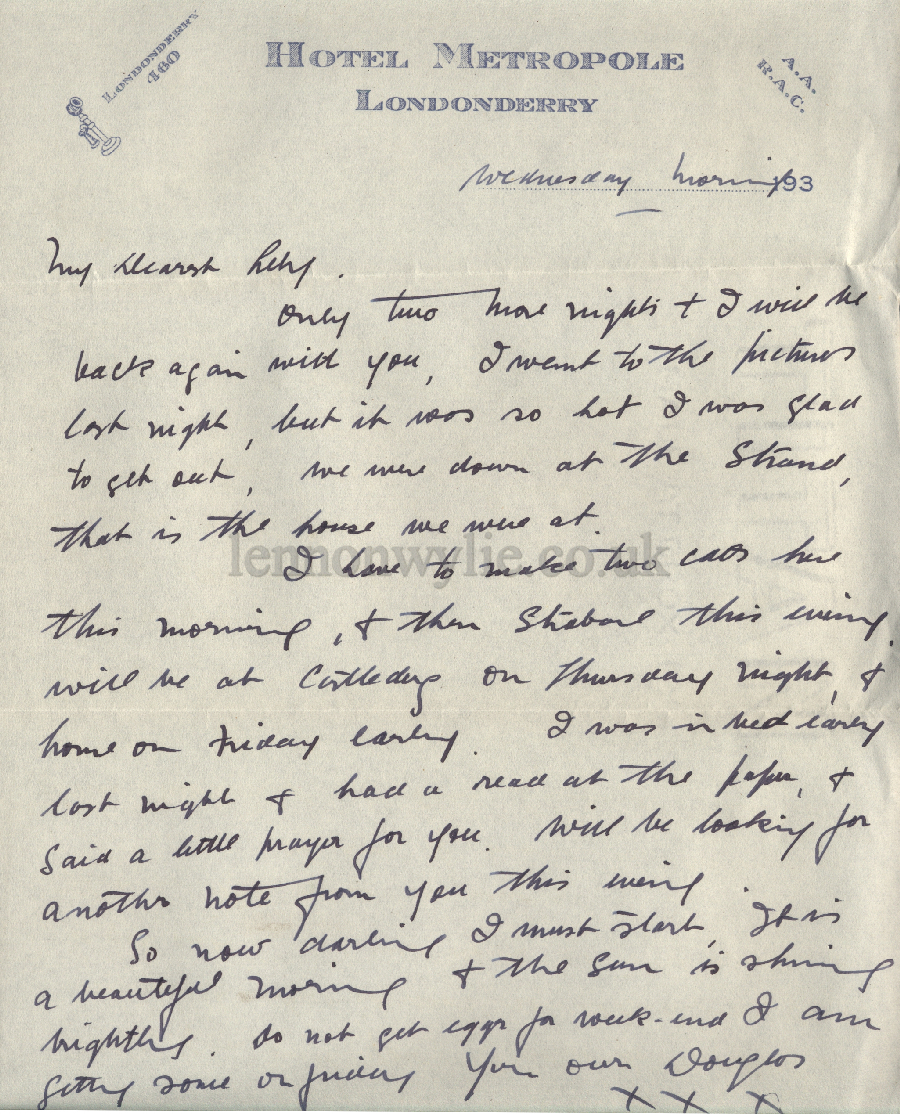 LONDONDERRY
460
HOTEL METROPOLE
LONDONDERRY
A.A.
R.A.C.
Wednesday Morning 193
My Dearest
Only two more nights & I will be
back again with you, I went to the pictures
last night, but it was so hot I was glad
to get out, we were down at the Strand,
that is the house we were at.
lennonwylie.co.uk
I have to make two calls here
this morning, & then Strabane this evening.
will be at Castlederg on Thursday night, &
home on Friday early. I was in bed early
last night & had a read at the paper, &
said a little prayer for you. Will be looking for
another note from you this evening.
So now darling I must start, It is
a beautiful morning & the sun is shining
brightly. do not get eggs for week-end I am
getting some on friday Your own Douglas
X X X